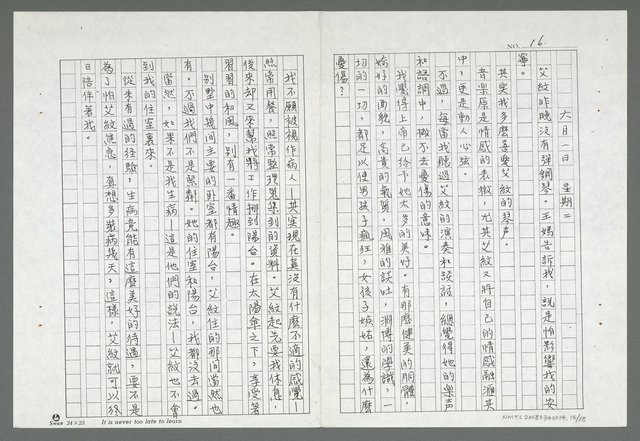 NO. 16
六月一日　星期二
艾紋昨晚沒有彈鋼琴。王媽告訴我，說是怕影響我的安
寧。
其實我多麼喜愛艾紋的琴声。
音樂原是情感的表徵，尤其艾紋又將自己的情感融滙其
中，更是動人心弦。
不過，每當我聽過艾紋的演奏和談話，總覺得她的樂声
和語調中，撇不去憂傷的意味。
我覺得上帝已給予她太多的美好。有那麼健美的胴體，
嬌好的面貌，高貴的氣質，風雅的談吐，淵博的學識，
切的一切，都足以使男孩子瘋狂，女孩子嫉妬，還為什麼
憂傷？
我不願被視作病人—其實現在真沒有什麼不適的感覺—
照常用餐，照常整理蒐集到的資料。艾紋起先要我休息，
後來却又來幫我將工作挪到陽台。在太陽傘之下，享受著
習習的和風，別有一番情趣。
別墅中幾間主要的卧室都有陽台，艾紋住的那間當然也
有。不過我不是緊鄰。她的住室和陽台，我都沒去過。
當然，如果不是我生病—這是他們的說法—艾紋也不會
到我的住室裏來。
從未有過的經驗，生病竟能有這麼美好的待遇，要不是
為了怕艾紋倏急，真想多装病幾天，這樣，艾紋就可以終
日陪伴著我。
Swan 24×25 It is never too late to learn
NMTL20080340034.16/18